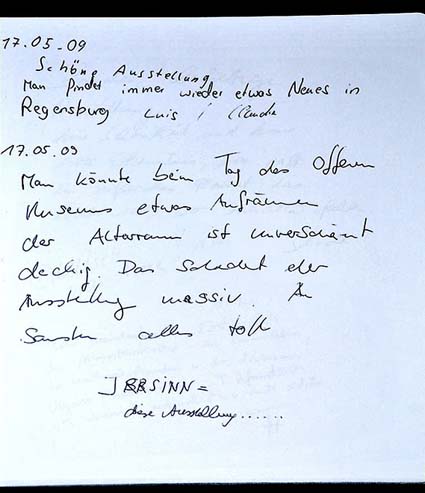 17.05.09
Schöne Ausstellung
Man findet immer wieder etwas Neues in
Regensburg Luis / Claudia
17.05.09
Man könnte beim Tag des Offenen
Museums etwas Aufräumen
der Altarraum ist unverschämt
deckig. Das schadet der
Ausstellung massiv.
Sonsten alles toll
IRRSINN =
diese Ausstellung......